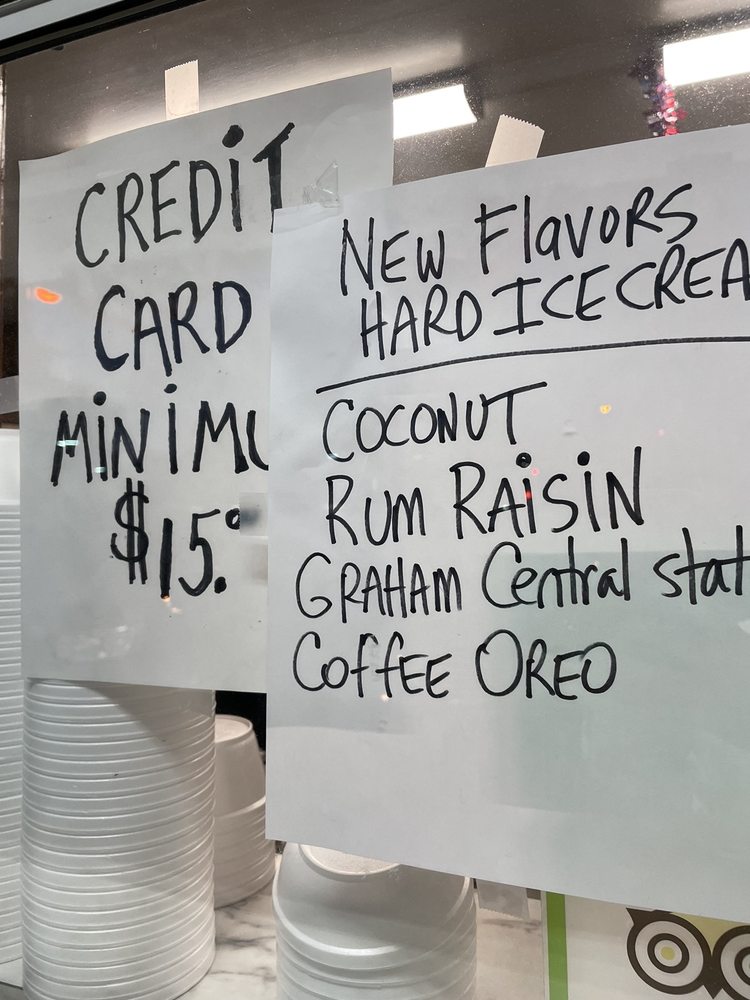 CREDIT
CARD
MINIMU
$15.º
NEW FlAVORS
HARD ICE CREA
COCONUT
RUM RAISIN
GRAHAM Central stat
COFFEE OREO